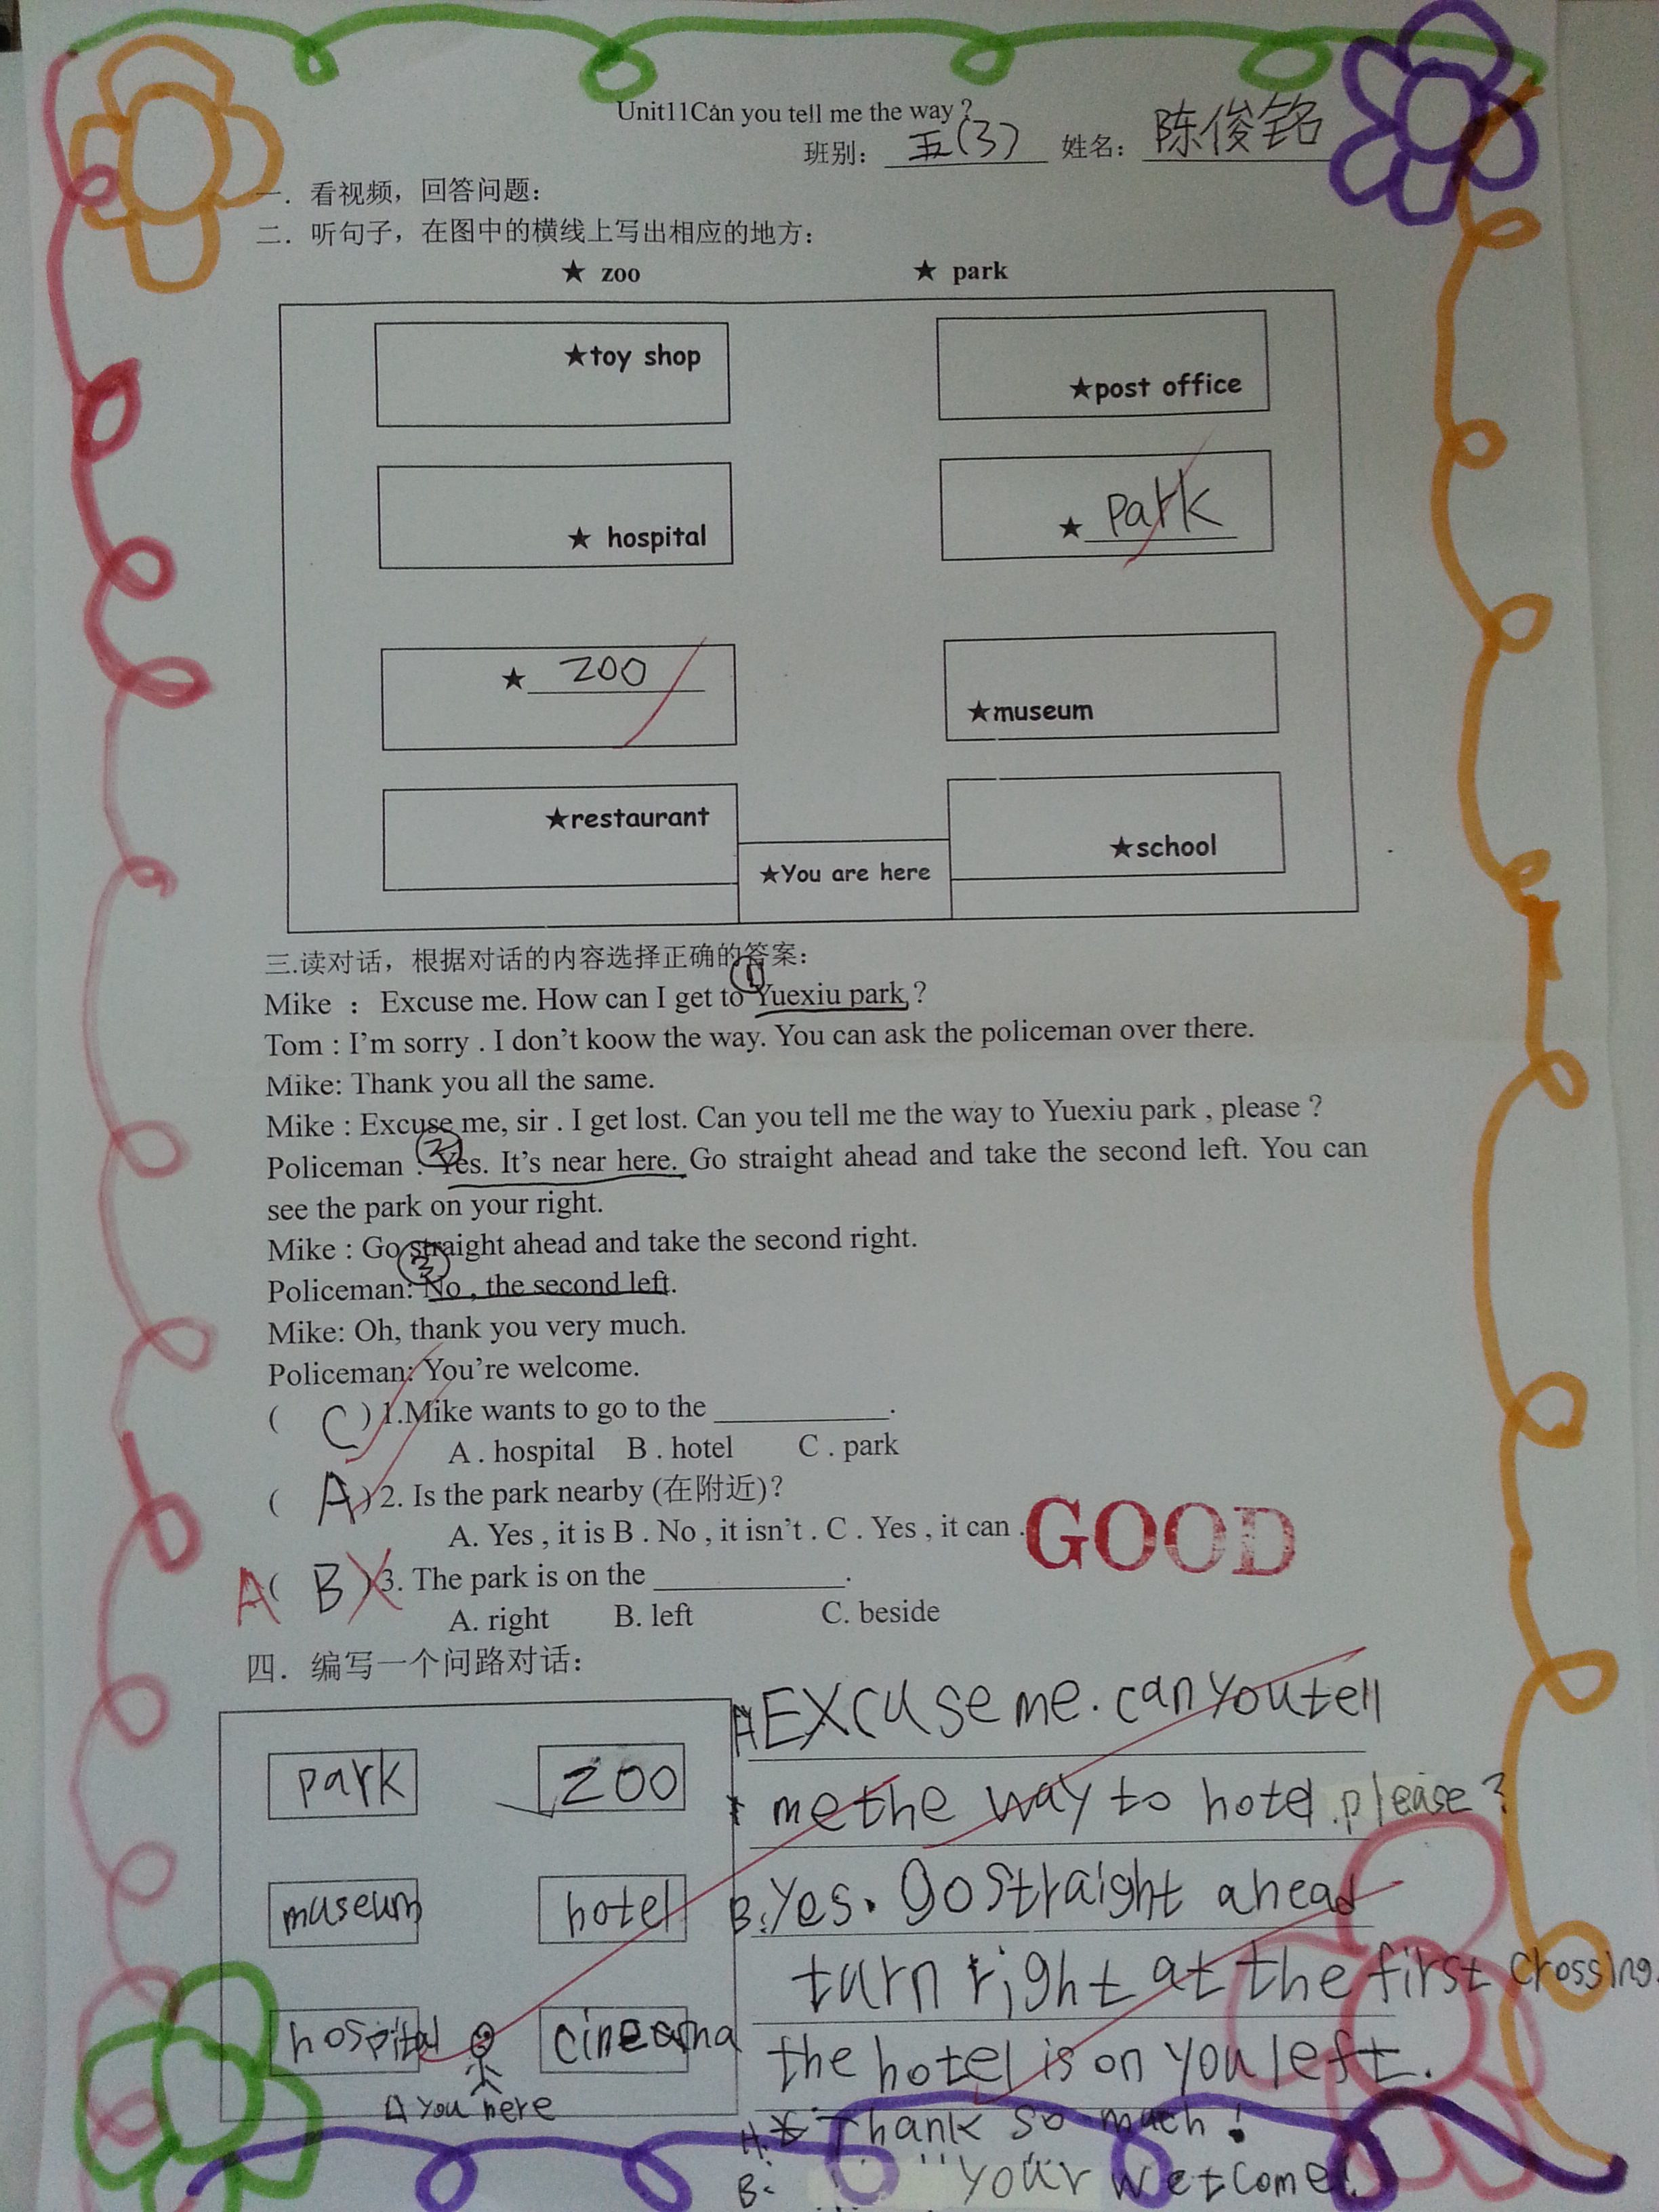 Unit11Can you tell me the way ?
班别： 五(3) 姓名： 陈俊铭
一．看视频，回答问题：
二．听句子，在图中的横线上写出相应的地方：
★ zoo ★ park
★toy shop
★post office
★ hospital
★ park
★ zoo
★museum
★restaurant
★school
★You are here
三.读对话，根据对话的内容选择正确的答案：
①
Mike ： Excuse me. How can I get to Yuexiu park ?
Tom : I'm sorry . I don't koow the way. You can ask the policeman over there.
Mike: Thank you all the same.
Mike : Excuse me, sir . I get lost. Can you tell me the way to Yuexiu park , please ?
②
Policeman : Yes. It's near here. Go straight ahead and take the second left. You can
see the park on your right.
Mike : Go straight ahead and take the second right.
③
Policeman: No , the second left.
Mike: Oh, thank you very much.
Policeman: You're welcome.
( C ) 1.Mike wants to go to the ____________.
A . hospital B . hotel C . park
( A ) 2. Is the park nearby (在附近)?
A. Yes , it is B . No , it isn't . C . Yes , it can .
GOOD
A ( B ) 3. The park is on the _____________.
A. right B. left C. beside
四．编写一个问路对话：
park
zoo
museum
hotel
hospital
you here
A EXcuse me. can you tell
me the way to hotel please?
B: Yes. Go straight ahead
turn right at the first crossing.
the hotel is on you left.
A: Thank so much!
B: your welcome!